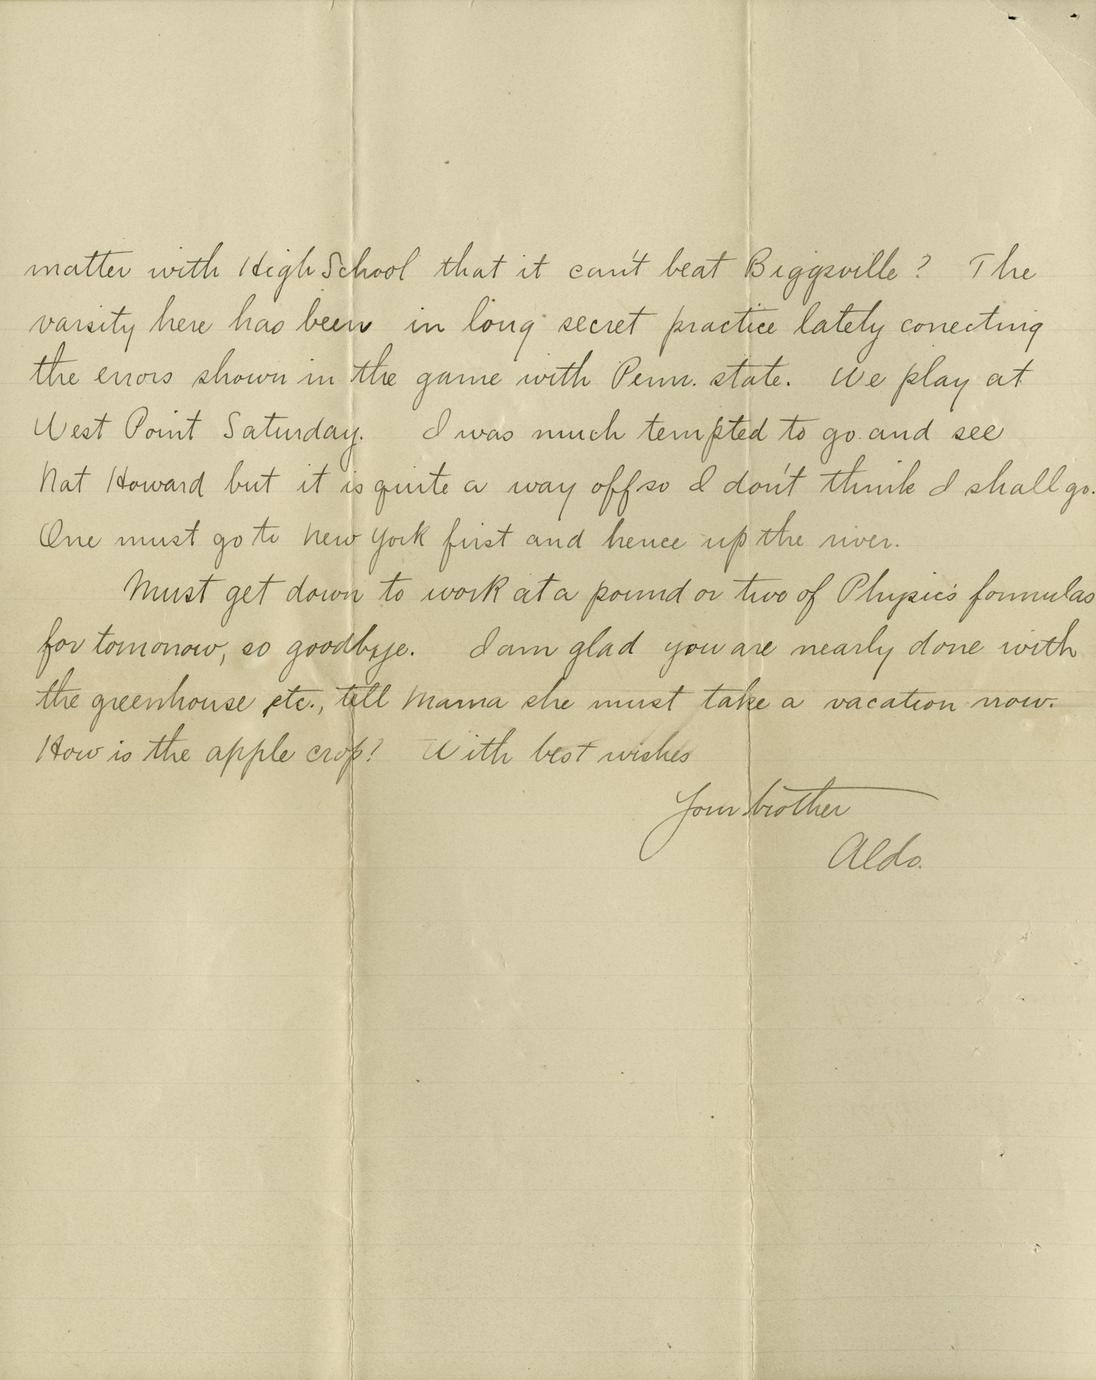 matter with High School that it can't beat Biggsville? The
varsity here has been in long secret practice lately correcting
the errors shown in the game with Penn. state. We play at
West Point Saturday. I was much tempted to go and see
Nat Howard but it is quite a way off so I don't think I shall go.
One must go to New York first and hence up the river.
Must get down to work at a pound or two of Physics formulas
for tomorrow, so goodbye. I am glad you are nearly done with
the greenhouse etc., tell Mama she must take a vacation now.
How is the apple crop? With best wishes
Your brother
Aldo.